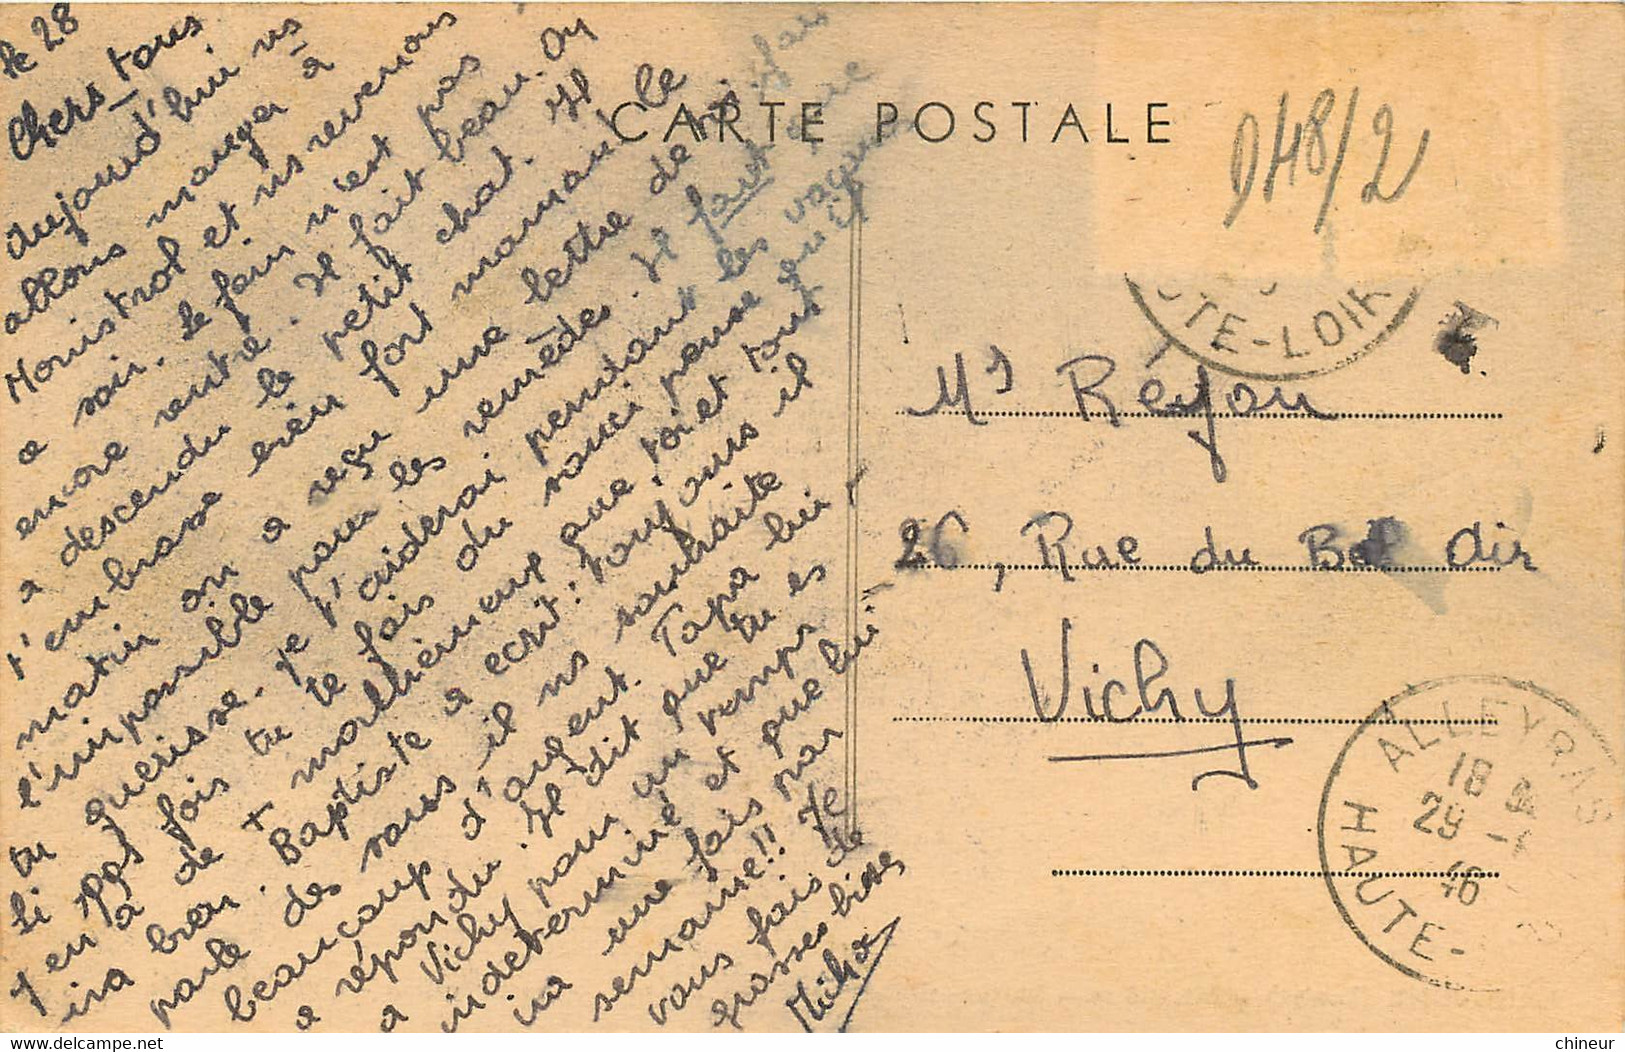 le 28
Chers tous
Aujourd'hui ns
allons manger à
Monistrol et ns revenons
ce soir. le foin n'est pas
encore rentré. Il fait beau. On
a descendu le petit chat. Il
t'embrasse bien fort maman! Ce
matin on a reçu une lettre de
l'impossible pour les remèdes. Il faut que
tu guérisse. Je t'aiderai pendant les vacances
si tu te fais du souci pense qu'il
y en a de + malheureux que toi et tout
ira bien. Baptiste a ecrit: toujours il
parle des sous il ns souhaite
beaucoup d'argent. Papa lui
a répondu. Il dit que tu es
a Vichy pour un temps
indeterminé et que lui
ira une fois par
semaine!! Je
vous fais de
grosses bises
CARTE POSTALE
948/2
TE-LOIR
Mr Réyon
26, Rue du Bel Air
Vichy
ALLEYRAS
18
29 -
46
HAUTE-
chineur